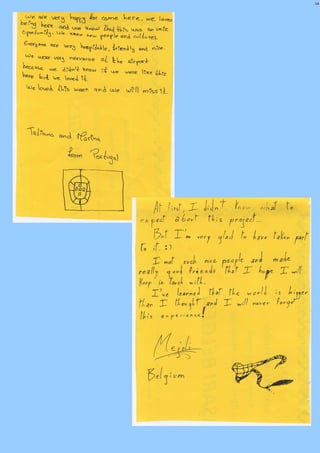 We are very happy for come here, we loved
being here and we know that this was an unic
oportunity. We know new people and cultures.
Everyone are very hospitable, friendly and nice.
We were very nervouse at the airport
because we didn't know if we were like this
here but we loved it.
We loved this week and we will miss it.
Tatiana and Marina
from Portugal
At first, I didn't know what to
expect about this project.
But I'm very glad to have taken part
to it. :)
I met such nice people and made
really good friends that I hope I will
keep in touch with.
I've learned that the world is bigger
than I thought and I will never forget
this experience!
Mejdi
Belgium